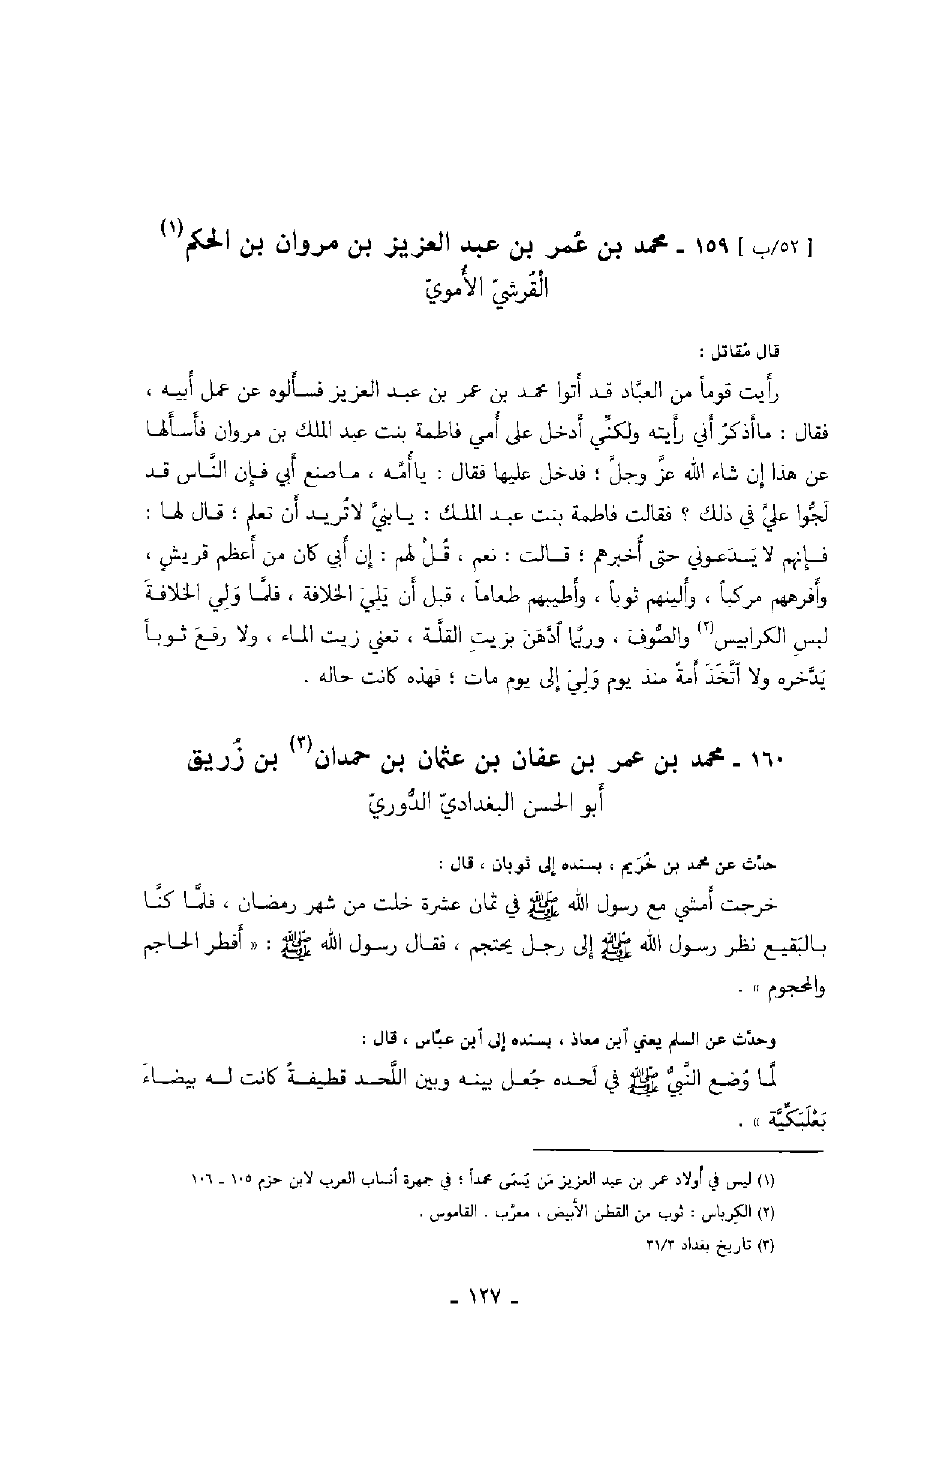 [ ٥٢/ب ] ١٥٩ ـ محمد بن عُمر بن عبد العزيز بن مروان بن الحكم(١)
الْقُرشيّ الأُمويّ
قال مُقاتل :
رأيت قوماً من العبَّاد قد أتوا محمد بن عمر بن عبد العزيز فسألوه عن عمل أبيه ،
فقال : ماأذكرُ أني رأيته ولكنِّي أدخل على أمي فاطمة بنت عبد الملك بن مروان فأسألها
عن هذا إن شاء الله عزَّ وجلَّ ؛ فدخل عليها فقال : ياأُمَّه ، ماصنع أبي فإن النَّاس قد
لَجُّوا عليَّ في ذلك ؟ فقالت فاطمة بنت عبد الملك : يابنيَّ لاتُريد أن تعلم ؛ قال لها :
فإنهم لا يَدَعوني حتى أُخبرهم ؛ قالت : نعم ، قُلْ لهم : إن أبي كان من أعظم قريشٍ ،
وأفرههم مركباً ، وألينهم ثوباً ، وأطيبهم طعاماً ، قبل أن يَليَ الخلافة ، فلمَّا وَلي الخلافةَ
لبس الكرابيس(٢) والصُّوف ، وربَّا اَدَّهَنَ بزيتِ القلَّة ، تعني زيت الماء ، ولا رقعَ ثوباً
يَدَّخره ولا اَتَّخَذَ أمةً منذ يوم وَلِيَ إلى يوم مات ؛ فهذه كانت حاله .
١٦٠ ـ محمد بن عمر بن عفان بن عثمان بن حمدان(٣) بن زُريق
أبو الحسن البغداديّ الدُّوريّ
حدَّث عن محمد بن خُرَيم ، بسنده إلى ثوبان ، قال :
خرجت أمشي مع رسول الله ﷺ في ثمان عشرة خلت من شهر رمضان ، فلمَّا كنَّا
بالبَقيع نظر رسول الله ﷺ إلى رجل يحتجم ، فقال رسول الله ﷺ : « أفطر الحاجم
والمحجوم » .
وحدَّث عن السلم يعني اَبن معاذ ، بسنده إلى اَبن عبَّاس ، قال :
لَّا وُضع النَّبيُّ ﷺ في لَحده جُعل بينه وبين اللَّحد قطيفةٌ كانت له بيضاءَ
بَعْلَبَكِّيَّة » .
(١) ليس في أولاد عمر بن عبد العزيز مَن يُسَمَّى محمداً ؛ في جمهرة أنساب العرب لابن حزم ١٠٥ ـ ١٠٦
(٢) الكرباس : ثوب من القطن الأبيض ، معرَّب . القاموس .
(٣) تاريخ بغداد ٣١/٣
ـ ١٢٧ ـ